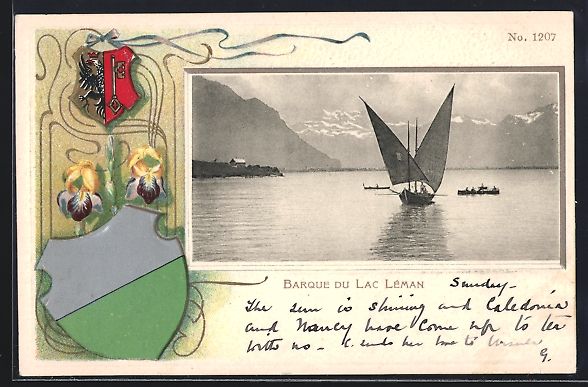 No. 1207
BARQUE DU LAC LÉMAN
Sunday -
The sun is shining and Caledonia
and Nancy have come up to tea
with us - C. sends her love to Ursula
G.